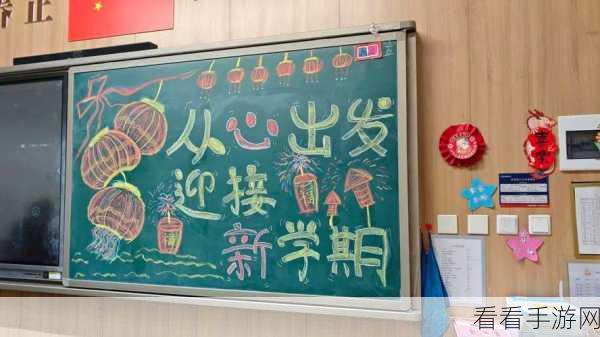 从心出发
迎接
新学期
看看手游网